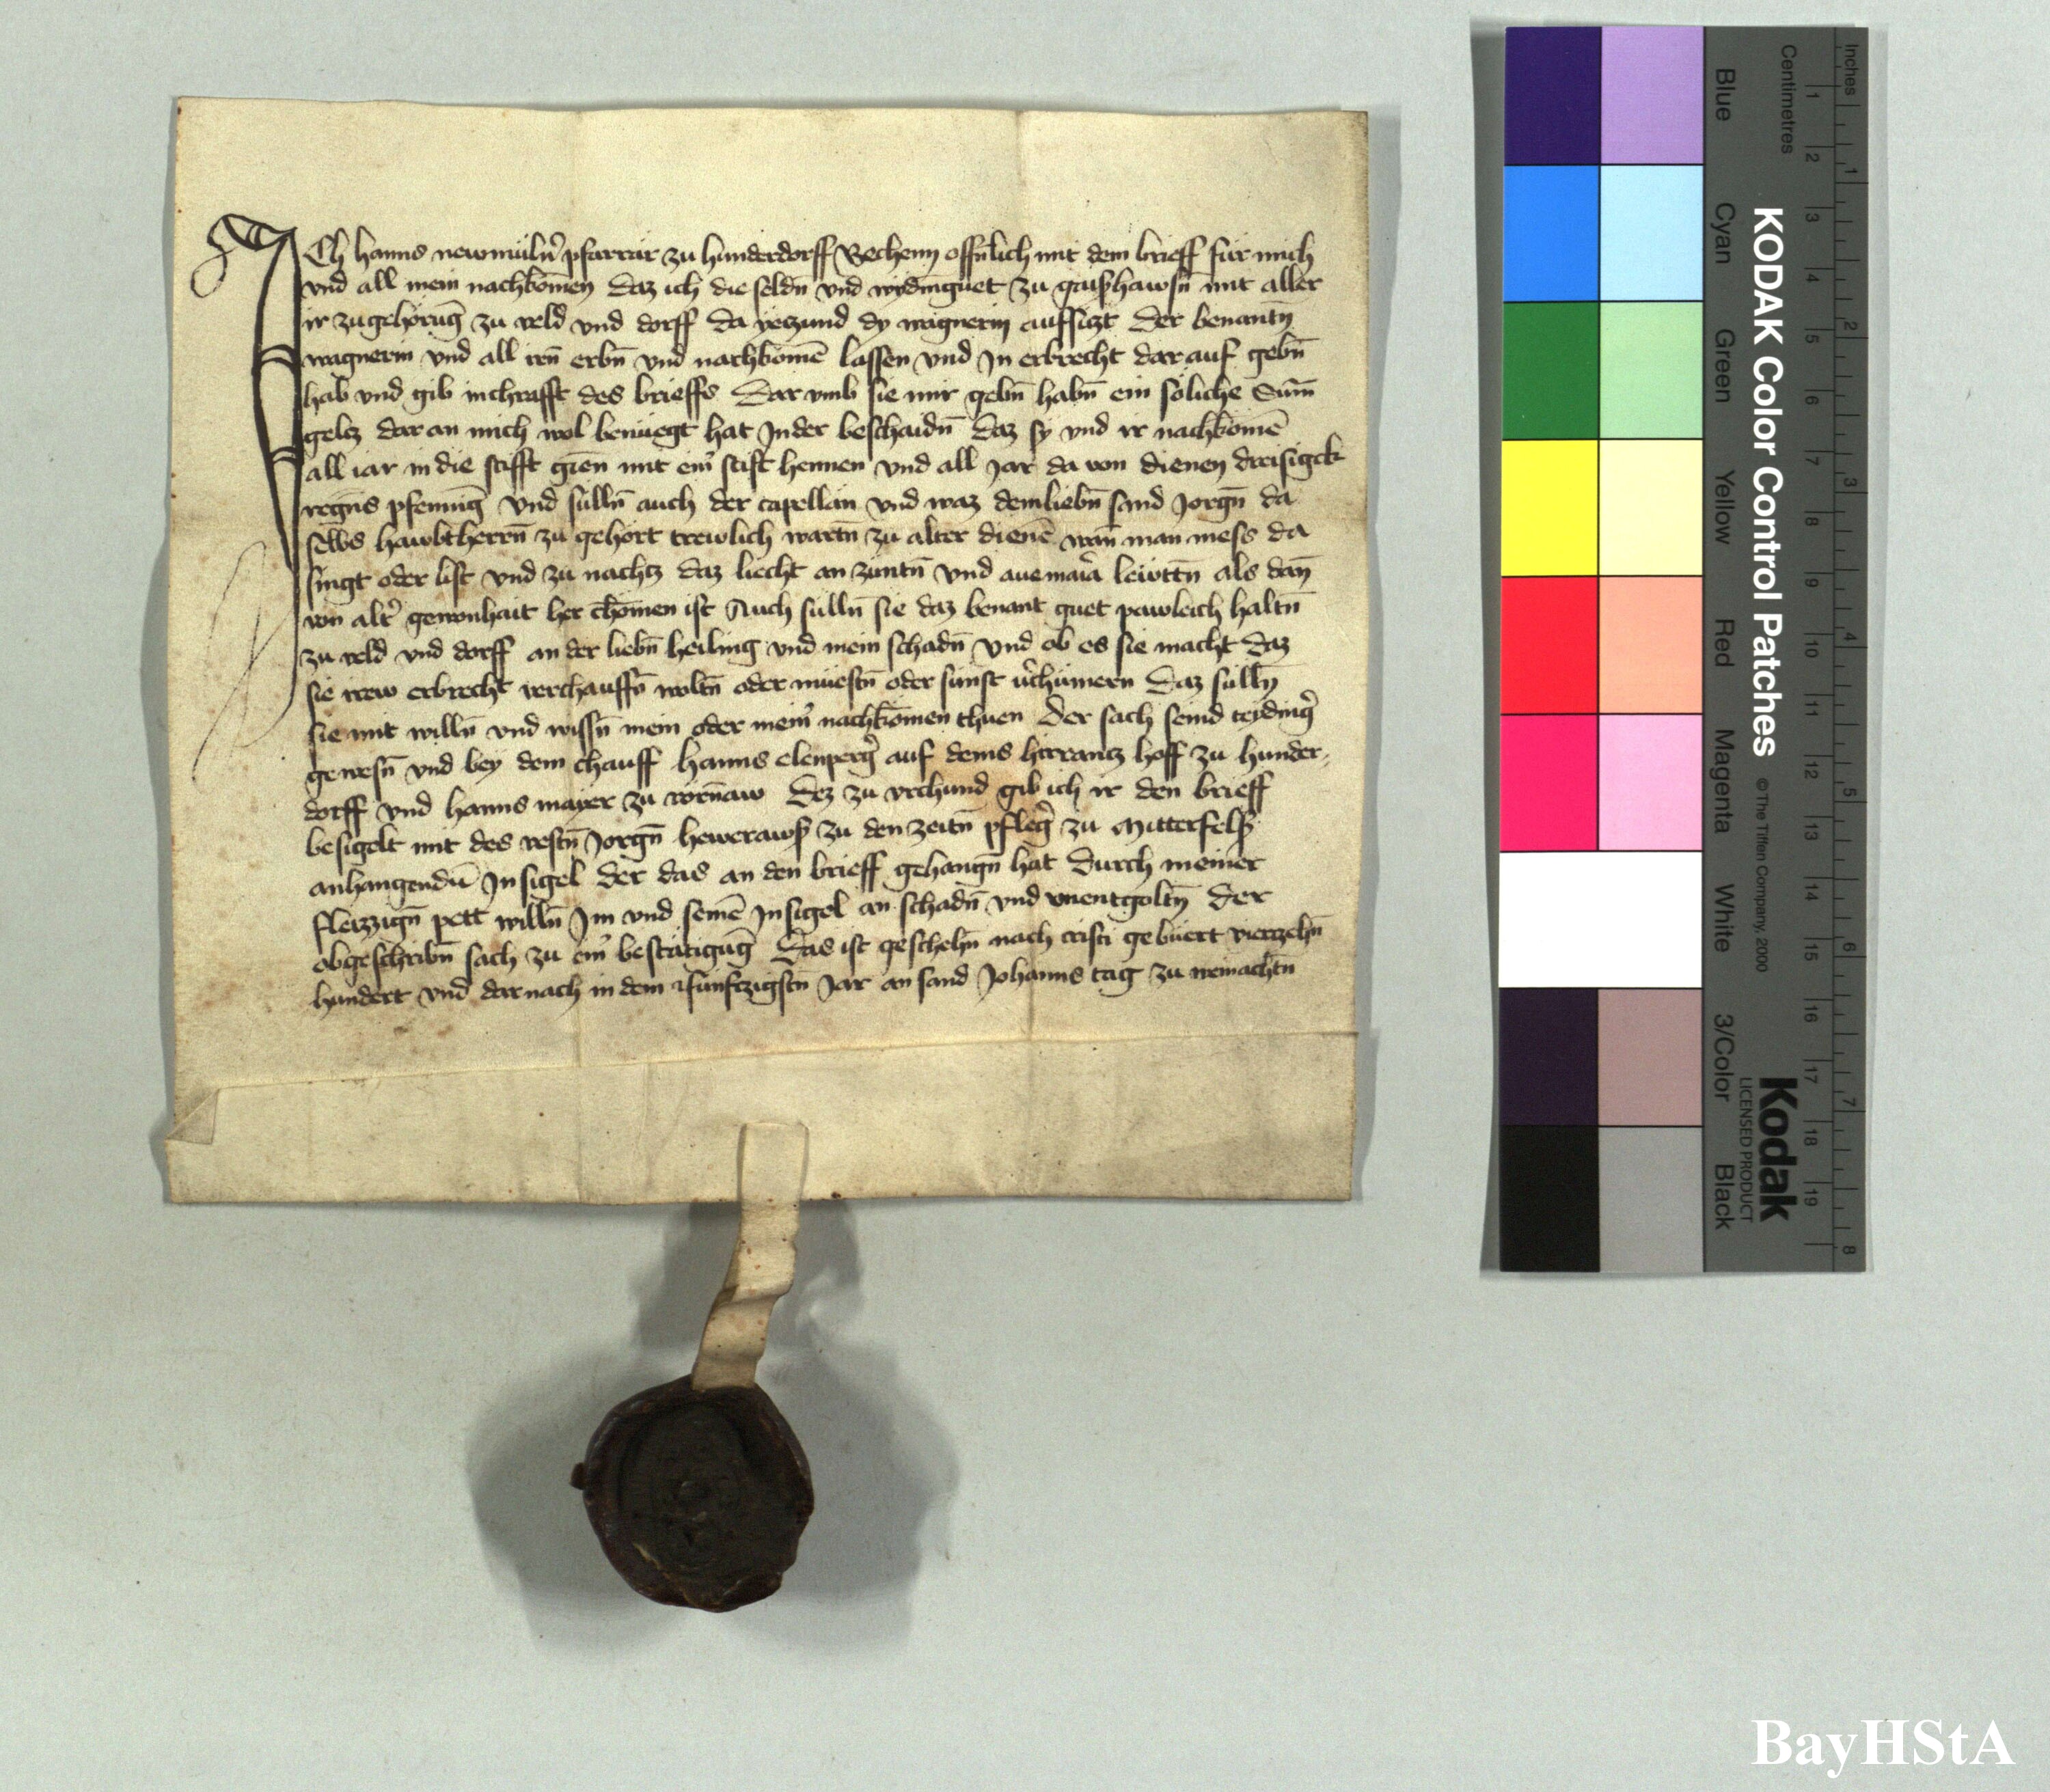 Ich hanns newmulnˀ pfarrar zu hunderdorff Bechenn offnlich mit dem brieff fur mich
vnd all mein nachkomen Daz ich die seldn̄ vnd widmguet zu gaishawsn̄ mit aller
ir zugehorūg zu veld vnd dorff da yeczund dy wagnerin aufsiczt Der benantn̄
wagnerin vnd all irn̄ erbn̄ vnd nachkomē lassen vnd In erbrecht dar auf gebn̄
hab vnd gib inchrafft des brieffs Dar vmb sie mir gebn̄ habn̄ ein soliche Sum̄
geltz dar an mich wol benuegt hat Inder beschaidn̄ Daz sy vnd ir nachkomē
all iar in die stifft gien̄ mit eim̄ stift hennen vnd all Jar da von dienen dreisigck
regn̄s pfennīg vnd sulln̄ auch der capellan vnd waz demliebn̄ sand Jorgn̄ da
selbs hawbtherrn̄ zu gehort trewlich wartn̄ zu alter dienē wan̄ man mess da
singt oder list vnd zu nachtz daz liecht an zuntn̄ vnd auemaria lewttn̄ als dan̄
von altˀ gewonhait her chomen ist Auch sulln̄ sie daz benant guet pawleich haltn̄
zu veld vnd dorff an der liebn̄ heiling vnd mein schadn̄ vnd ob es sie macht daz
sie irew erbrecht verchauffn̄ woltn̄ oder muestn̄ oder sunst vˀchumern Daz sulln̄
sie mit willn̄ vnd wissn̄ mein oder meinˀ nachkomen thuen Der sach seind teydingˀ
gewesn̄ vnd bey dem chauff hanns elenpergˀ auf dems hirrantz hoff zu hunder-
dorff vnd hanns mayer zu rorn̄aw Dez zu vrchund gib ich ir den brieff
besigelt mit des vestn̄ Jorgn̄ hewerawss zu den zeitn̄ pflegˀ zu Mitterfelss
anhangendū Insigel der das an den brieff gehangn̄ hat durch meiner
fleizzign̄ pett willn̄ Im vnd seinē Insigel an schadn̄ vnd vnentgoltn̄ Der
obgeschribn̄ sach zu einˀ bestatigūg Das ist geschehn̄ nach cristi gebuert vierzehn̄
hundert vnd darnach in dem funfczigstn̄ Jar an sand Johanns tag zu weinachtn̄
KODAK Color Control Patches © The Tiffen Company, 2000
Kodak
LICENSED PRODUCT
Blue Cyan Green Yellow Red Magenta White 3/Color Black
Inches 1 2 3 4 5 6 7 8
Centimetres 1 2 3 4 5 6 7 8 9 10 11 12 13 14 15 16 17 18 19
BayHStA